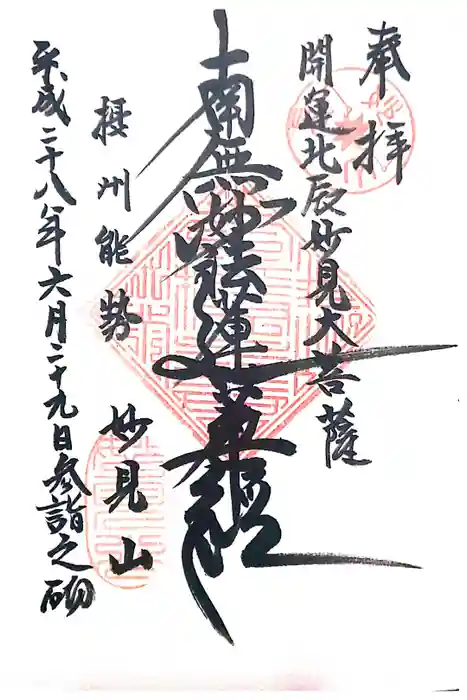 奉拝
開運北辰妙見大菩薩
南無妙法蓮華経
摂州能勢
妙見山
平成二十八年六月二十九日参詣之砌